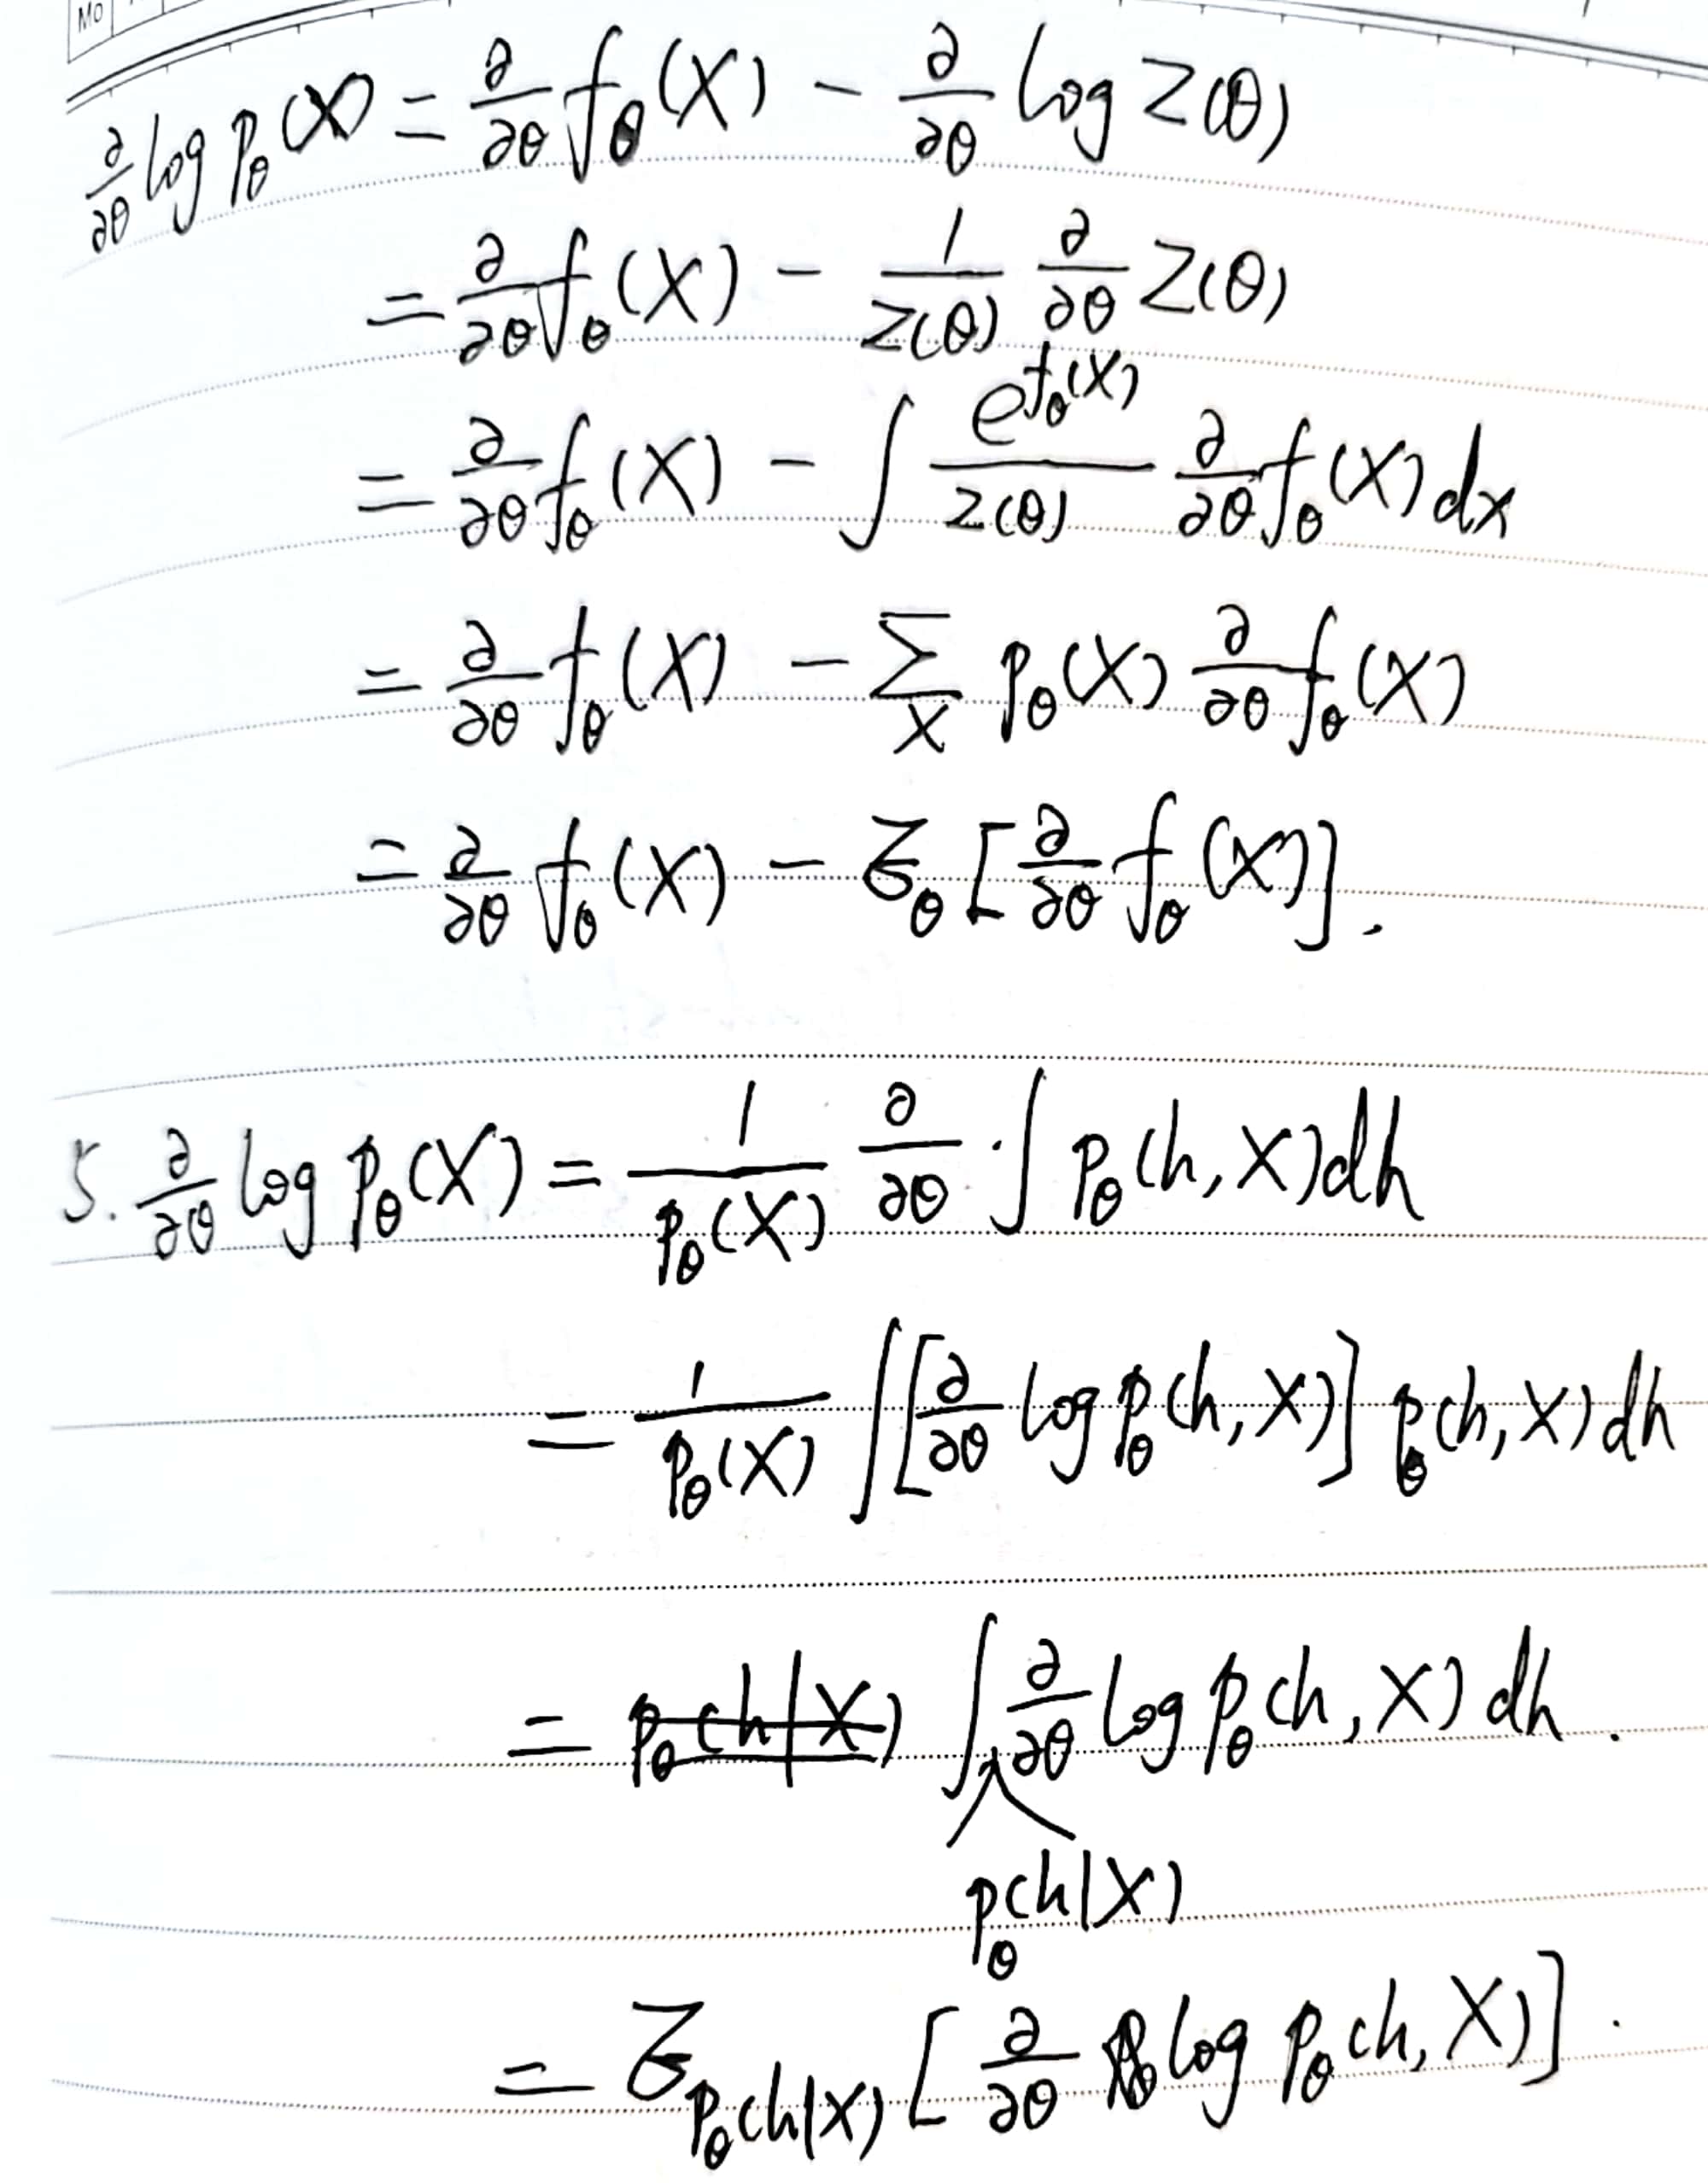 Mo
∂/∂θ log p_θ(X) = ∂/∂θ f_θ(X) - ∂/∂θ log Z(θ)
= ∂/∂θ f_θ(X) - 1/Z(θ) ∂/∂θ Z(θ)
= ∂/∂θ f_θ(X) - ∫ e^{f_θ(X)}/Z(θ) ∂/∂θ f_θ(X) dx
= ∂/∂θ f_θ(X) - Σ_X p_θ(X) ∂/∂θ f_θ(X)
= ∂/∂θ f_θ(X) - E_θ [∂/∂θ f_θ(X)].
5. ∂/∂θ log p_θ(X) = 1/p_θ(X) ∂/∂θ · ∫ p_θ(h, X) dh
= 1/p_θ(X) ∫ [∂/∂θ log p_θ(h, X)] p_θ(h, X) dh
= p_θ(h|X) ∫ ∂/∂θ log p_θ(h, X) dh.
p_θ(h|X)
= E_{p_θ(h|X)} [∂/∂θ log p_θ(h, X)].